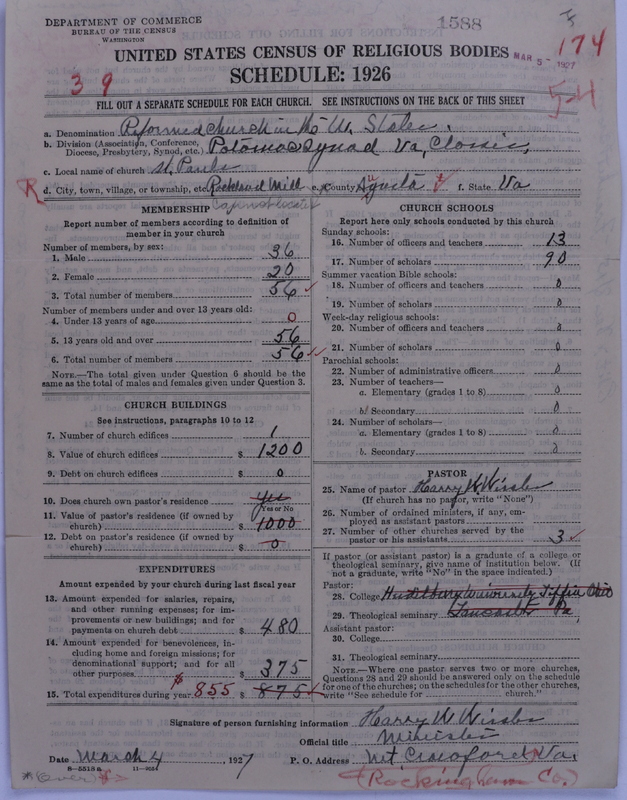 DEPARTMENT OF COMMERCE
BUREAU OF THE CENSUS
WASHINGTON
1588
174
MAR 5 - 1927
UNITED STATES CENSUS OF RELIGIOUS BODIES
SCHEDULE: 1926
39
54
FILL OUT A SEPARATE SCHEDULE FOR EACH CHURCH. SEE INSTRUCTIONS ON THE BACK OF THIS SHEET
a. Denomination Reformed Church in the U. States.
b. Division (Association, Conference, Diocese, Presbytery, Synod, etc.) Potomac Synod Va, Classis,
c. Local name of church St. Pauls
d. City, town, village, or township, etc. Mill e. County Agusta f. State Va
R
MEMBERSHIP
Report number of members according to definition of member in your church
Number of members, by sex:
1. Male 36
2. Female 20
3. Total number of members 56
Number of members under and over 13 years old:
4. Under 13 years of age 0
5. 13 years old and over 56
6. Total number of members 56
NOTE.—The total given under Question 6 should be the same as the total of males and females given under Question 3.
CHURCH BUILDINGS
See instructions, paragraphs 10 to 12
7. Number of church edifices 1
8. Value of church edifices $ 1200
9. Debt on church edifices $ 0
10. Does church own pastor's residence yes
Yes or No
11. Value of pastor's residence (if owned by church) $ 1000
12. Debt on pastor's residence (if owned by church) $ 0
EXPENDITURES
Amount expended by your church during last fiscal year
13. Amount expended for salaries, repairs, and other running expenses; for improvements or new buildings; and for payments on church debt $ 480
14. Amount expended for benevolences, including home and foreign missions; for denominational support; and for all other purposes $ 375
15. Total expenditures during year $ 855 $ 875
CHURCH SCHOOLS
Report here only schools conducted by this church
Sunday schools:
16. Number of officers and teachers 13
17. Number of scholars 90
Summer vacation Bible schools:
18. Number of officers and teachers 0
19. Number of scholars 0
Week-day religious schools:
20. Number of officers and teachers 0
21. Number of scholars 0
Parochial schools:
22. Number of administrative officers 0
23. Number of teachers—
a. Elementary (grades 1 to 8) 0
b. Secondary 0
24. Number of scholars—
a. Elementary (grades 1 to 8) 0
b. Secondary 0
PASTOR
25. Name of pastor Harry W. Wissler
(If church has no pastor, write "None")
26. Number of ordained ministers, if any, employed as assistant pastors
27. Number of other churches served by the pastor or his assistants 3
If pastor (or assistant pastor) is a graduate of a college or theological seminary, give name of institution below. (If not a graduate, write "No" in the space indicated.)
Pastor:
28. College Heidelberg University Tiffin Ohio
29. Theological seminary Lancaster Pa,
Assistant pastor:
30. College
31. Theological seminary
NOTE.—Where one pastor serves two or more churches, Questions 28 and 29 should be answered only on the schedule for one of the churches; on the schedules for the other churches, write "See schedule for church."
Signature of person furnishing information Harry W Wissler
Official title Minister
Date March 4, 1927 P. O. Address Mt. Crawford Va.
8—5518a 11—9024
(over)
(Rockingham Co.)